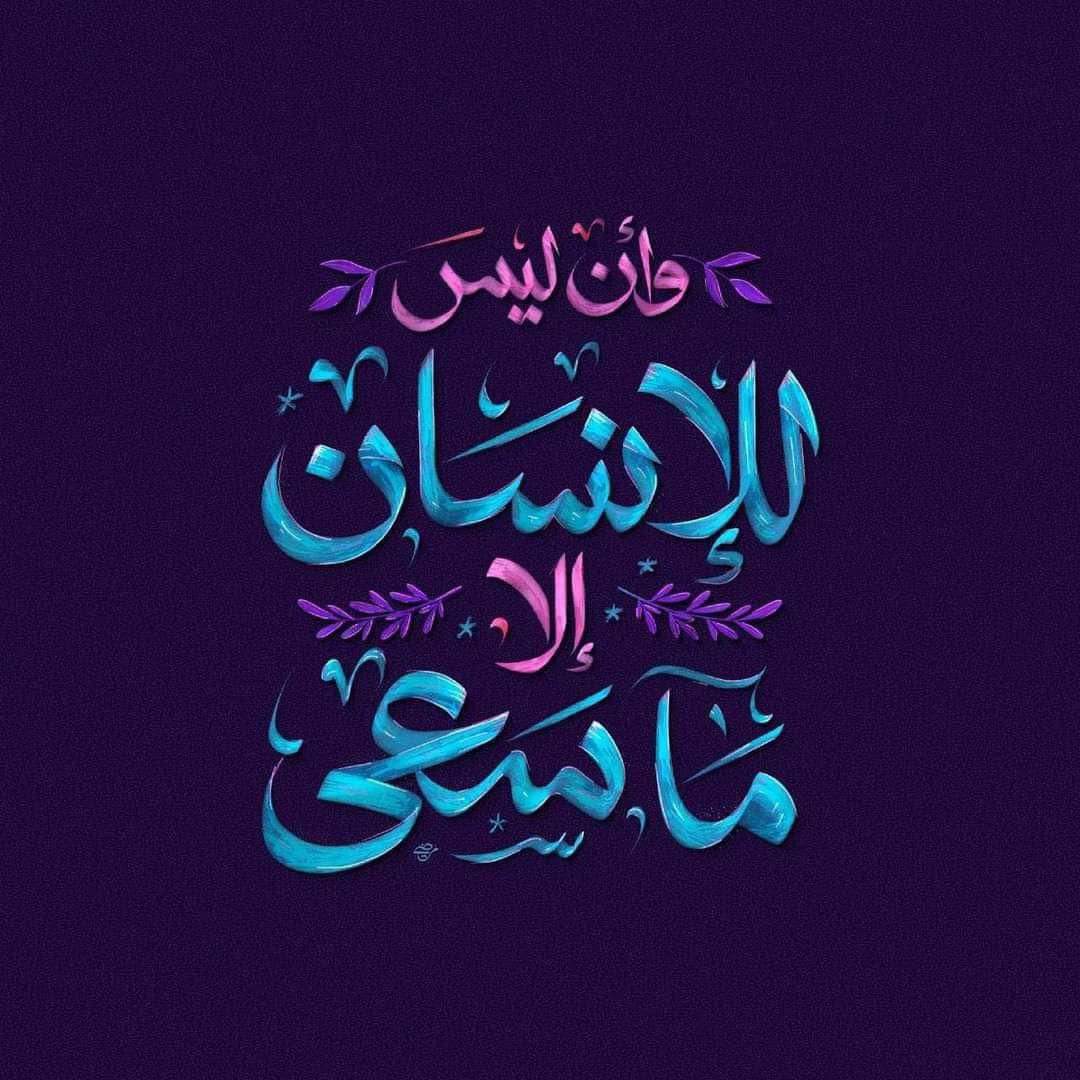 وأن ليسَ
للإنسَان
إلا
مَا سَعى